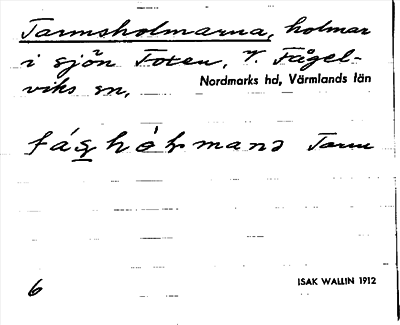 Tarmsholmarna, holmar
i sjön Foxen, V. Fågel-
viks sn,
Nordmarks hd, Värmlands län
Tarm
6
ISAK WALLIN 1912